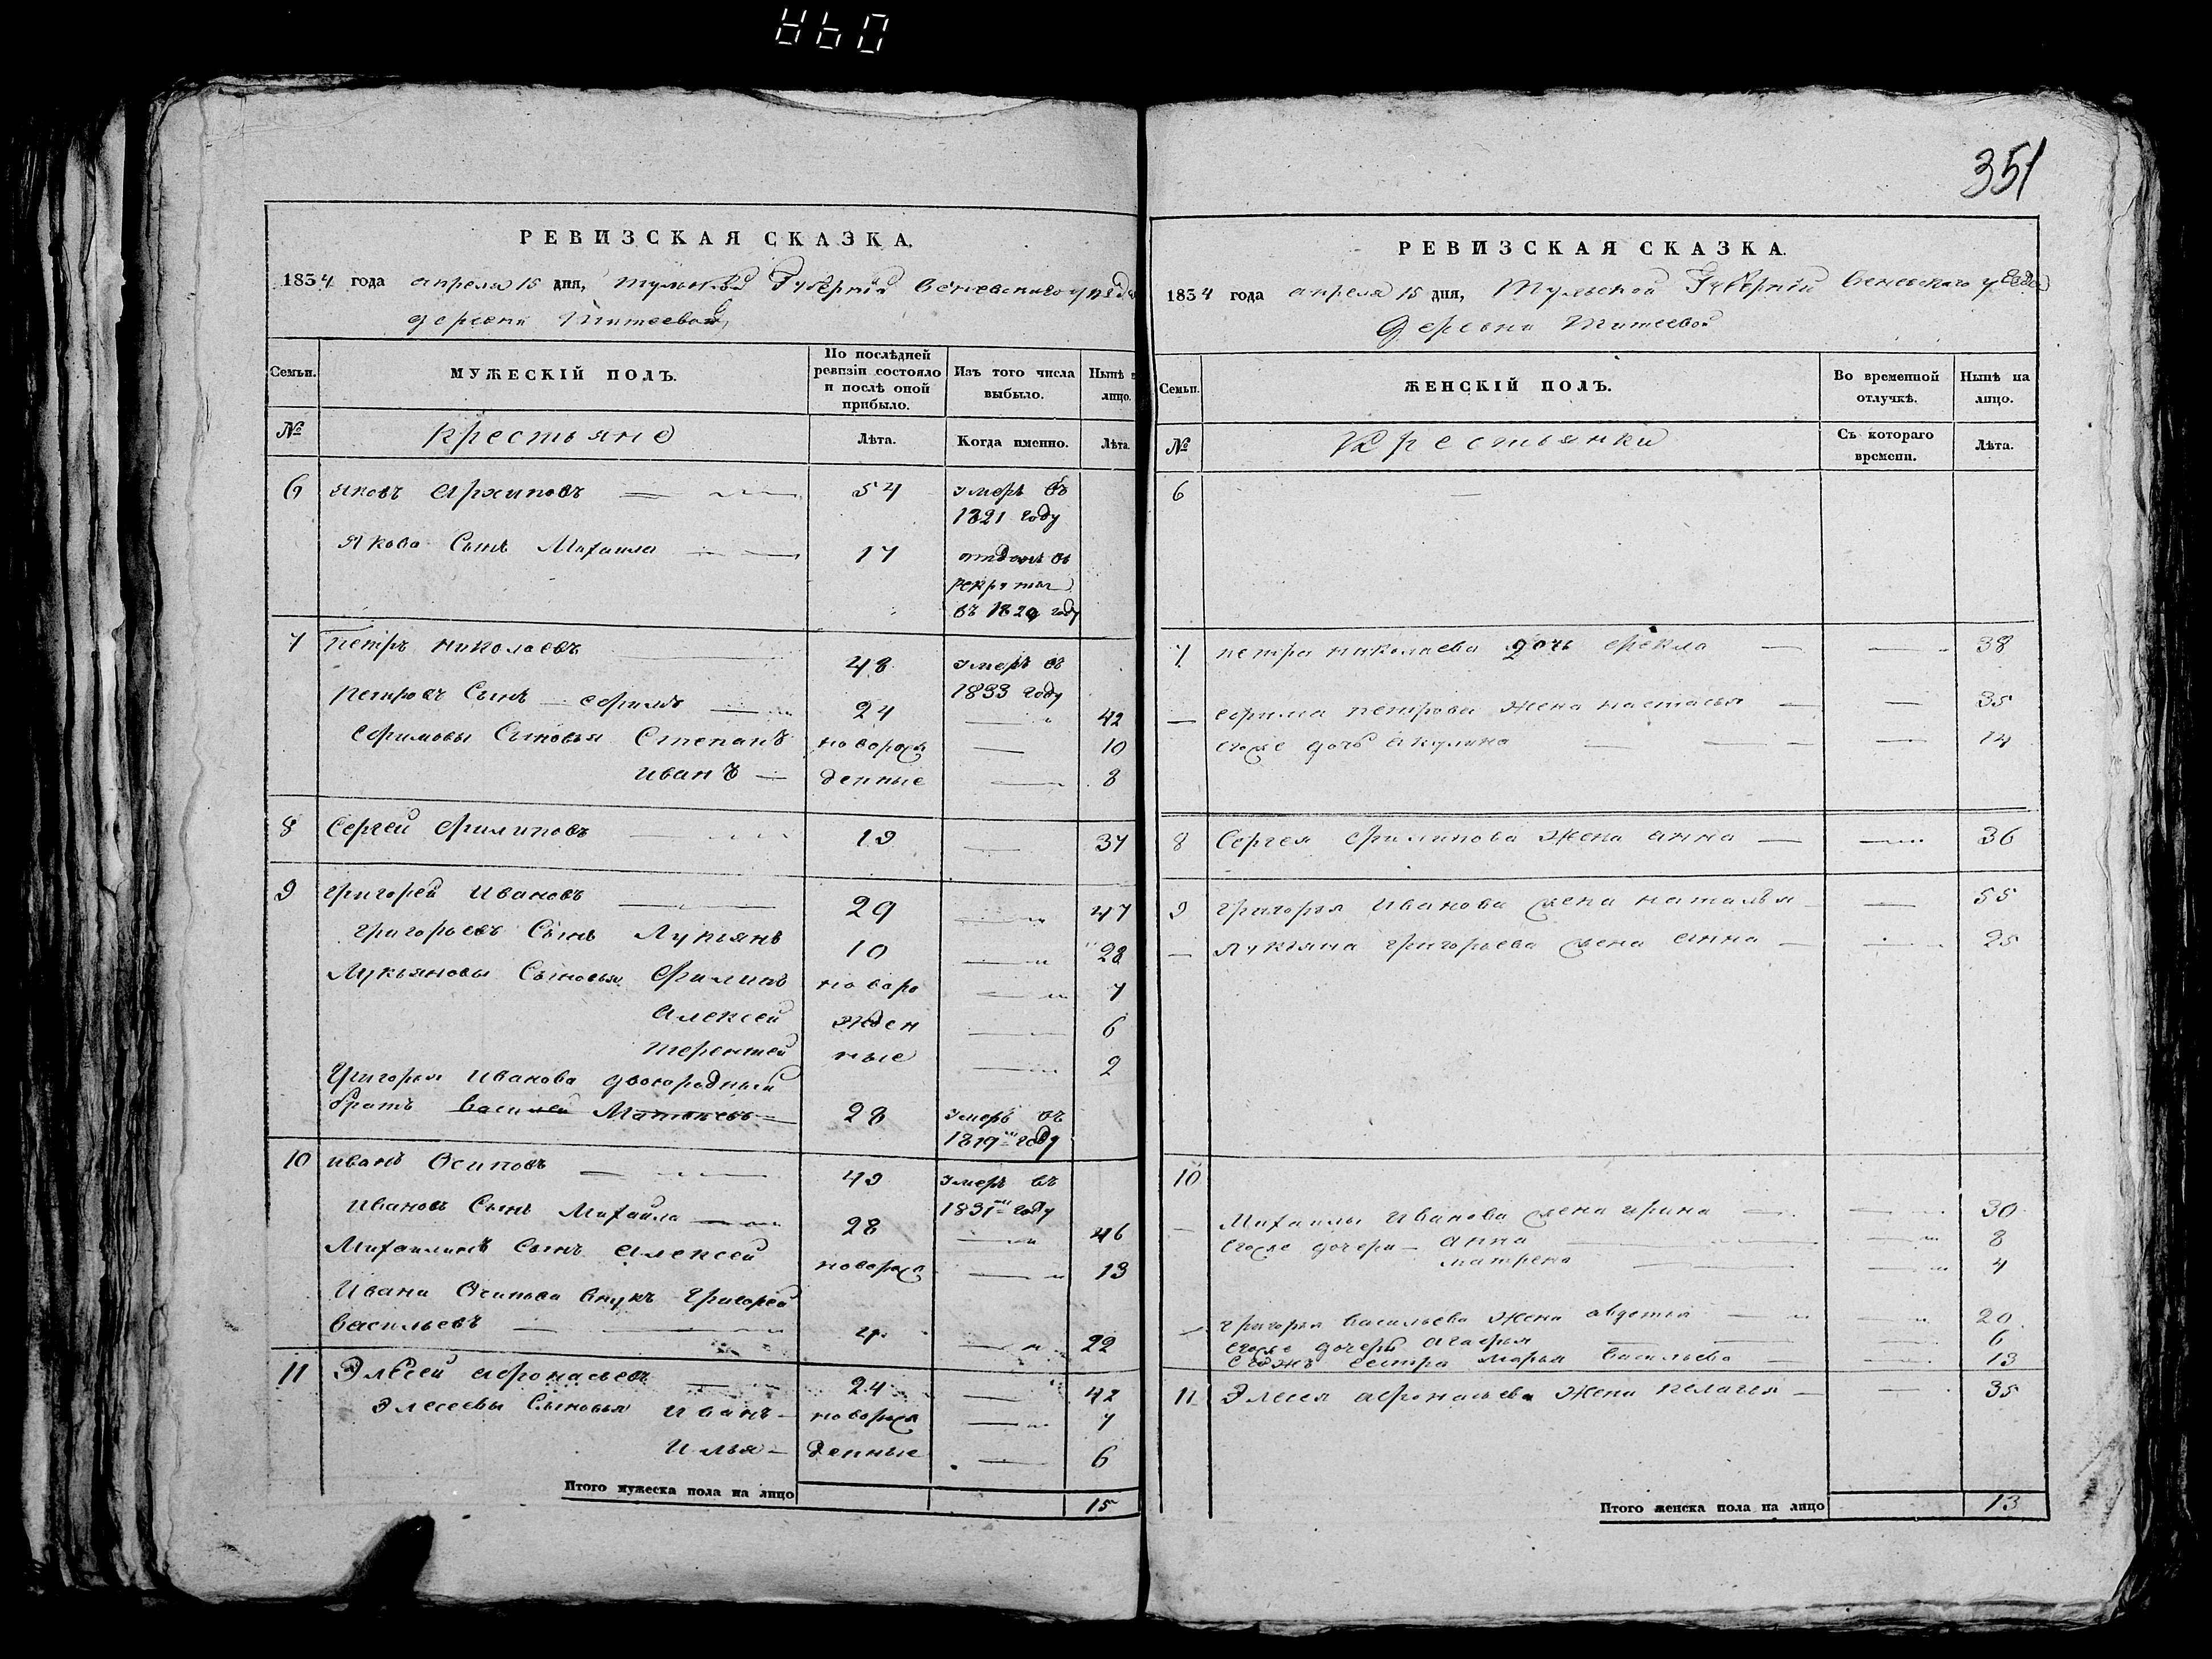 351
РЕВИЗСКАЯ СКАЗКА.
1834 года апреля 15 дня, тульской Губернiи веневского уезда
деревни Титеевой
Семьи. МУЖЕСКІЙ ПОЛЪ. По послѣдней ревизіи состояло и послѣ оной прибыло. Изъ того числа выбыло. Нынѣ на лицо.
№ крестьяне Лѣта. Когда именно. Лѣта.
6 яковъ архиповъ 54 умеръ въ
1821 году
якова Сынъ Михаила 17 отданъ въ
рекруты
въ 1820 году
7 петръ николаевъ 48 умеръ въ
1833 году
петровъ Сынъ ефимъ 24 42
ефимовы Сыновья Степанъ новорож 10
иванъ денные 8
8 Сергей филиповъ 19 37
9 григорей ивановъ 29 47
григорьевъ Сынъ Лукьянъ 10 28
Лукьяновы Сыновья Филипъ новоро 7
алексей жден 6
терентей ные 2
григорья иванова двоюродный
братъ василей 28 умеръ въ
1819м году
10 иванъ Осиповъ 49 умеръ въ
1831м году
ивановъ Сынъ Михайла 28 46
Михайлинъ Сынъ алексей новорож 13
ивана Осипова внукъ григорей
васильевъ 4 22
11 Элесей афонасьевъ 24 42
Элесеевы Сыновья иванъ новорож 7
илья денные 6
Итого мужеска пола на лицо 15
РЕВИЗСКАЯ СКАЗКА.
1834 года апреля 15 дня, Тульской Губернiи веневского уезда
деревни Титеевой
Семьи. ЖЕНСКІЙ ПОЛЪ. Во временной отлучкѣ. Нынѣ на лицо.
№ Крестьянки Съ котораго времени. Лѣта.
6
7 петра николаева дочь фекла 38
ефима петрова жена настасья 35
егоже дочь акулина 14
8 Сергея филипова жена анна 36
9 григорья иванова жена наталья 55
Лукьяна григорьева жена анна 25
10
Михаилы иванова жена ирина 30
егоже дочери анна 8
матрена 4
григорья васильева жена авдотья 20
егоже дочерь агафья 6
егожъ сестра марья васильева 13
11 Элесея афонасьева жена пелагея 35
Итого женска пола на лицо 13